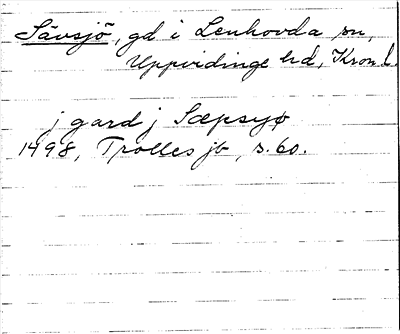 Sävsjö, gd i Lenhovda sn,
Uppvidinge hd, Kron.l.
j gard j Sæpsyø
1498, Trolles jb, s. 60.